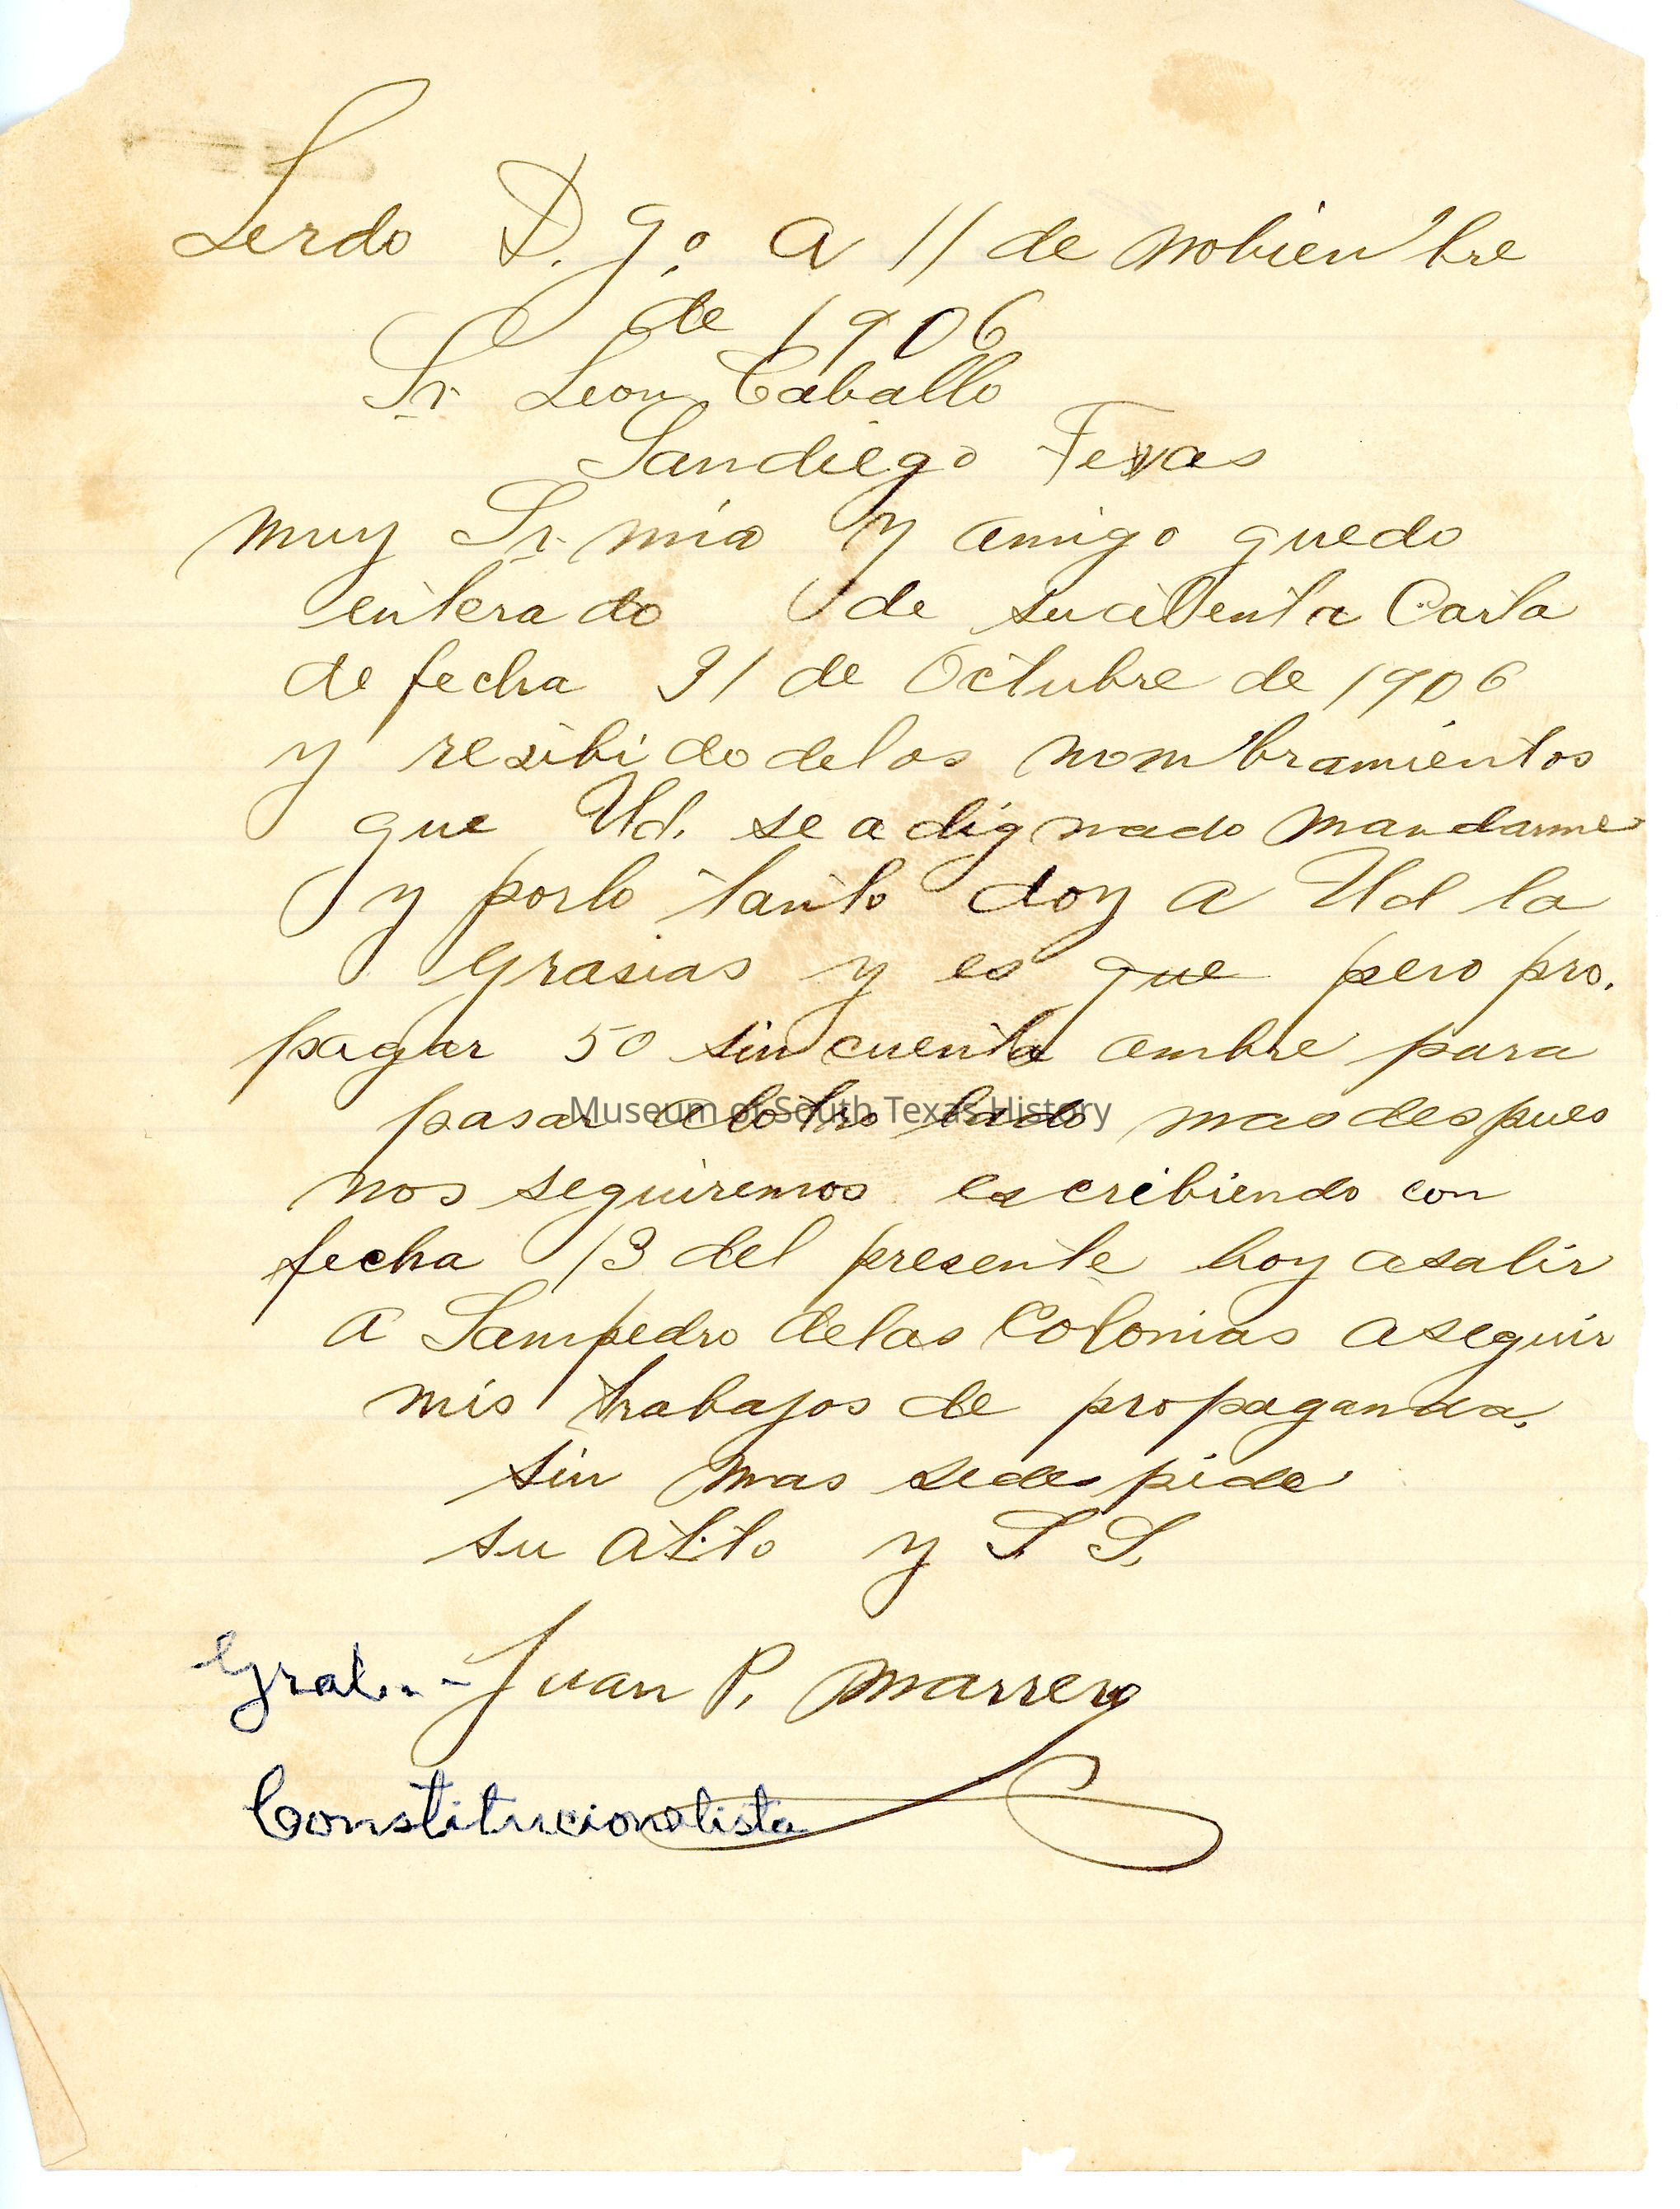 Lerdo D. g.o a 11 de nobienbre
de 1906
Sr. Leon Caballo
Sandiego Texas
muy Sr. mio y amigo quedo
enterado de su atenta Carta
de fecha 31 de Octubre de 1906
y resibido delos nombramientos
que Ud. se a dignado mandarme
y porlo tanto doy a Ud la
grasias y es que pero pro.
pagar 50 sincuenta ombre para
pasar alotro lado mas despues
nos seguiremos escribiendo con
fecha 13 del presente hoy asalir
a Sampedro delas Colonias aseguir
mis trabajos de propaganda.
sin mas sedespide
su atto y S S.
Gral.. - Juan P. Marrero
Constitucionalista
Museum of South Texas History